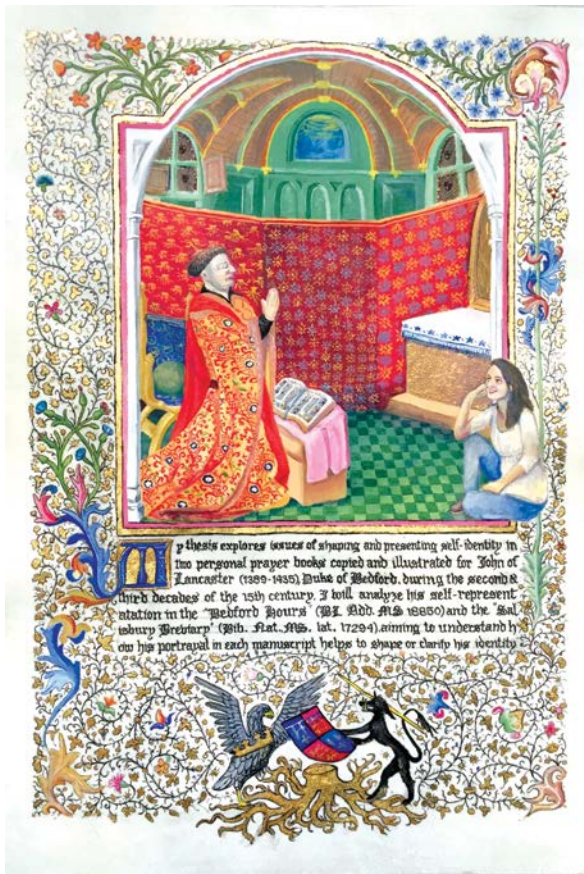 My thesis explores issues of shaping and presenting self-identity in
two personal prayer books copied and illustrated for John of
Lancaster (1389-1435), Duke of Bedford, during the second &
third decades of the 15th century. I will analyze his self-represent
atation in the "Bedford Hours" (BL Add. MS 18850) and the "Sal
isbury Breviary" (Bib. Nat. MS. lat. 17294), aiming to understand h
ow his portrayal in each manuscript helps to shape or clarify his identity